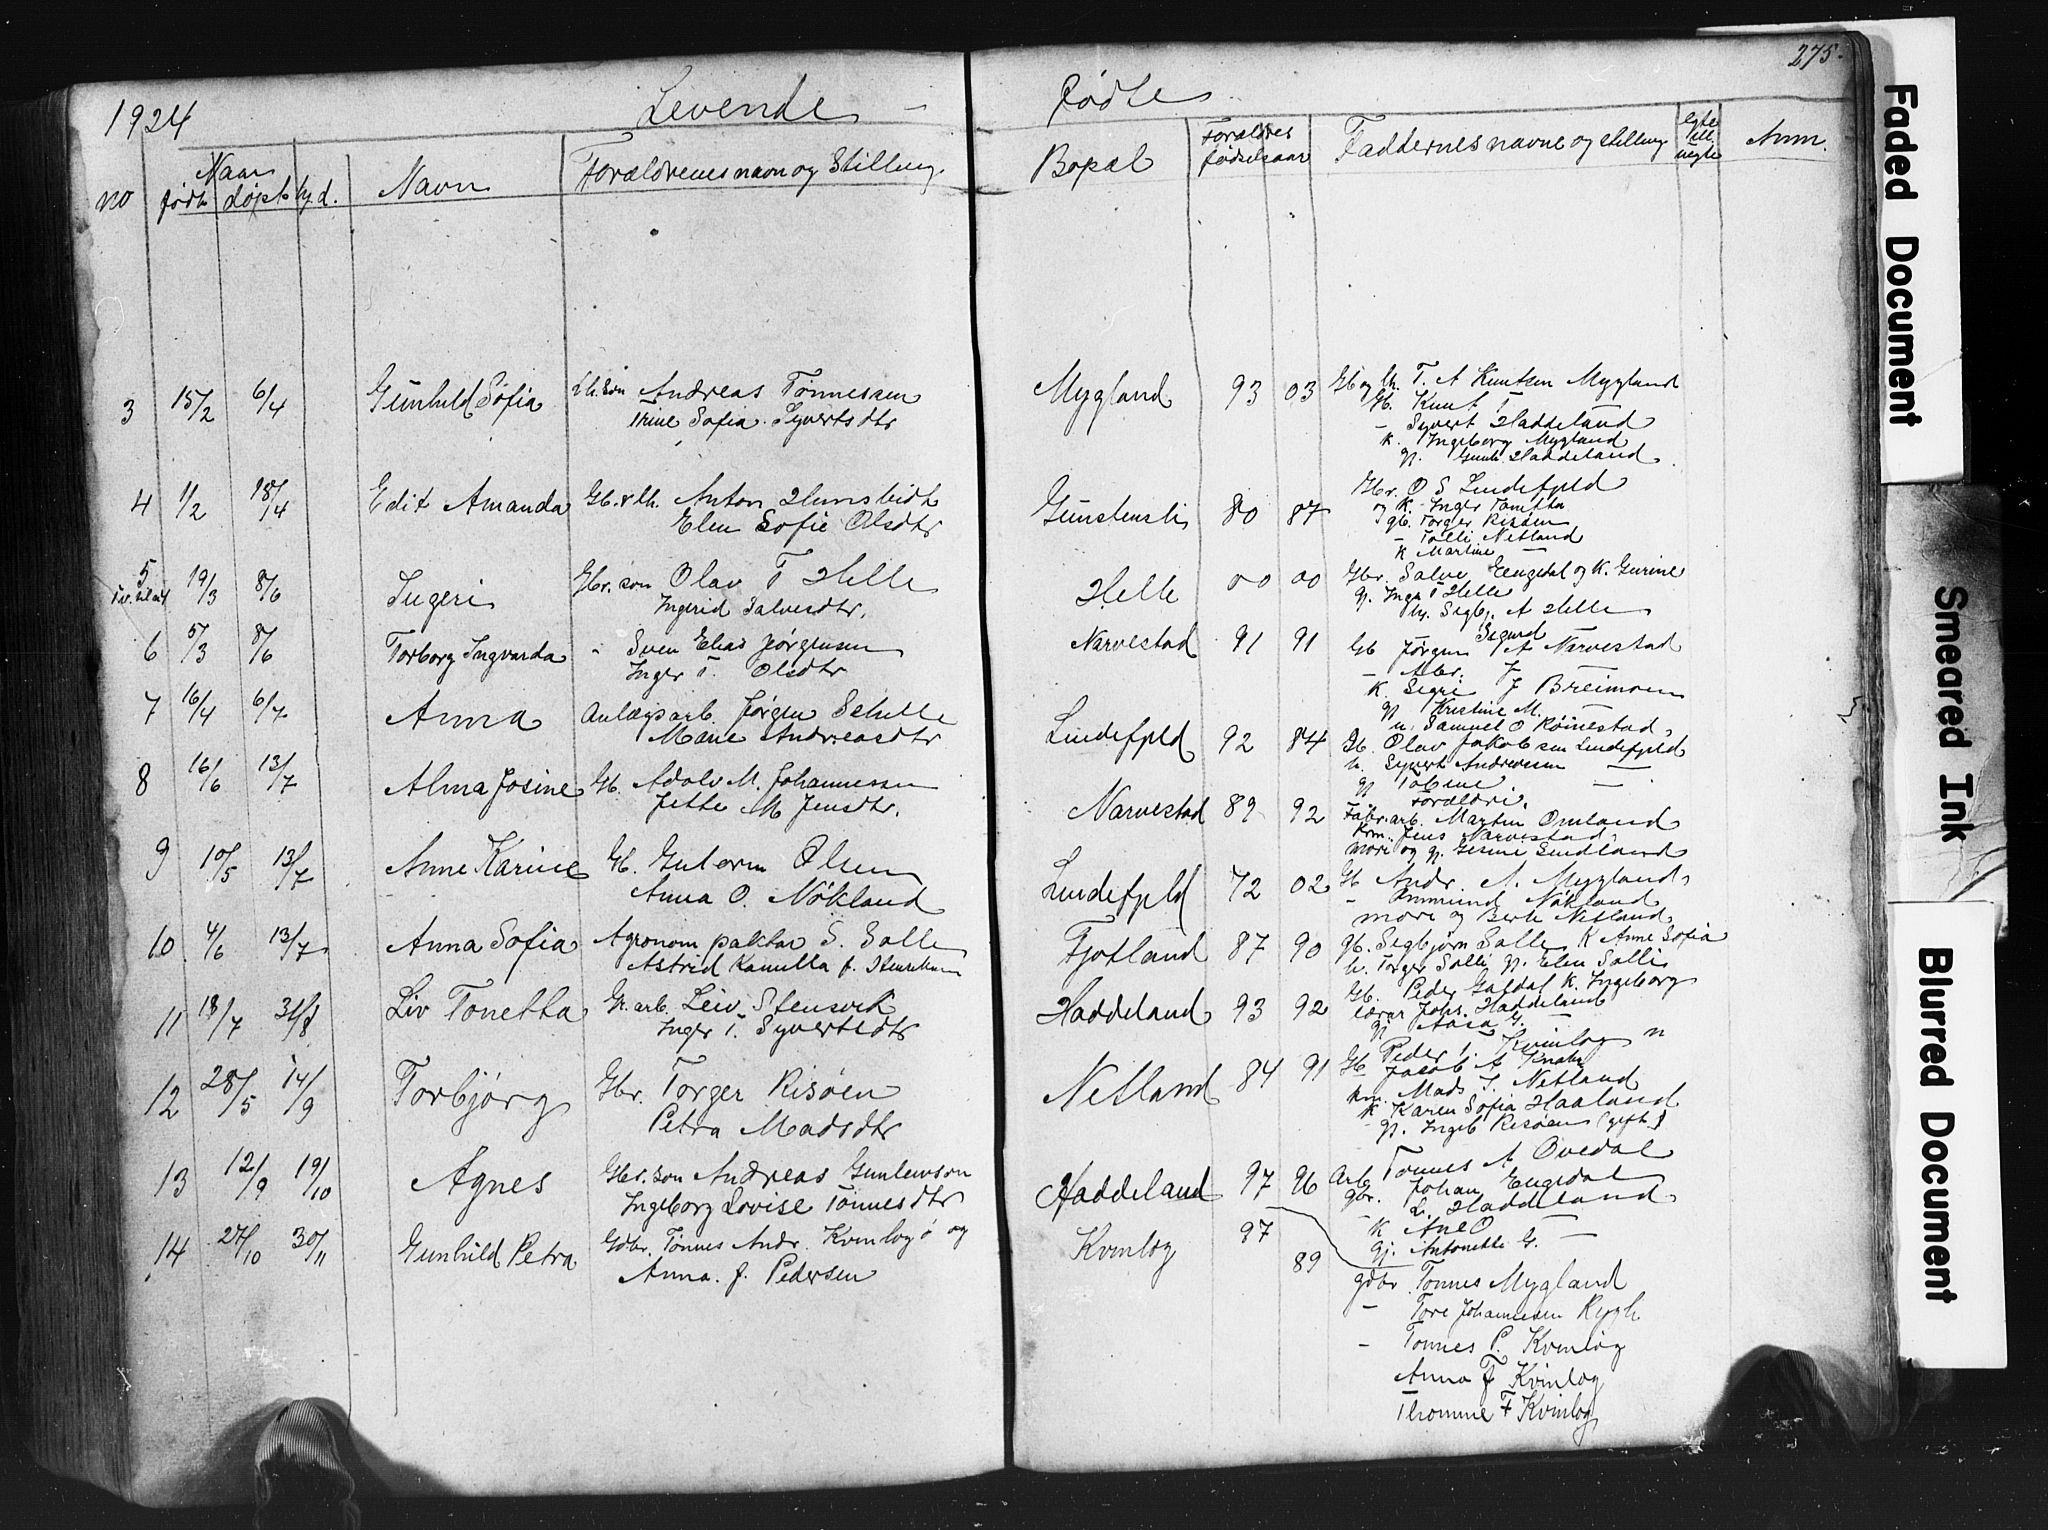 275.
1924 Levende - Fødte
no Naar født døpt hjd. Navn Forældrenes navn og Stilling Bopæl Forældres fødselsaar Faddernes navne og stilling egte ell. uegte Anm.
3 15/2 6/4 Gunhild Sofia Lh. søn Andreas Tønnessen Mygland 93 03 Gb og lh. T. A Knutsen Mygland
Trine Sofia Syvertsdtr
Gb. Knut T
- Syvert Haddeland
k. Ingeborg Mygland
pj. Gunh. Haddeland
4 1/2 18/4 Edit Amanda Gb. & lh. Anton Hunsbedt Gunstensli 80 87 Gbr. O S Lindefjeld
Elen Sofie Olsdtr
og k. Inger Tonetta
gb. Torger Risøen
- Tolli Netland
k Martine -
5 19/3 8/6 Ingeri Gbr. søn Olav T Helle Helle 00 00 Gbr. Salve Eengedal og k. Gurine
Ingerid Salvesdtr.
pj. Inga T Helle
Segbj. A Helle
6 5/3 8/6 Torborg Ingvarda - Sven Elias Jørgensen Narvestad 91 91 Gb Jørgen Sigurd A Narvestad
Inger T. Olsdtr
- Abr. J -
k. Segri J Breimoen
pj Kristine M. -
u. Samuel O Røinestad
7 16/4 6/7 Anna Anlægsarb. Jørgen Schelle Lindefjeld 92 84 Gb. Olav Jakobsen Lindefjeld
Marie Andreasdtr
u. Syvert Andreassen -
pj Tobine -
Forældri.
8 16/6 13/7 Alma Josine Gb. Adolv M. Johannessen Narvestad 89 92 Fabr. arb. Martin Omland
Jette M Jensdtr.
Krm. Jens Narvestad
mori og pj. Gesine Sindland
9 10/5 13/7 Anne Karine Gb. Gutorm Olsen Lindefjeld 72 02 Gb Andr. A. Mygland
Anna O. Nøkland
- Ommund Nøkland
mori og Berte Netland
10 4/6 13/7 Anna Sofia Agronom paktar S. Solle Fjotland 87 90 gb. Segbjørn Solle K Anne Sofia
Astrid Kamilla f. Henriksen
u. Torger Solli pj. Elen Solli
11 18/7 31/8 Liv Tonetta Gr. arb. Leiv Stensvik Haddeland 93 92 Gb. Peder Galdal k. Ingeborg
Inger T. Syvertsdtr
lærar Johs. Haddeland
pj Aasa G. -
12 28/5 14/9 Torbjørg Gbr. Torger Risøen Netland 84 91 Gb Peder T. Kvinlog
Petra Madsdtr
Jacob A Knaben
km. Mads T. Netland
k Karen Sofia Haaland
pj. Ingeb Risøen (gift)
13 12/9 19/10 Agnes Gbr. søn Andreas Gunlevson Haddeland 97 96 Arb Tønnes A Ovedal
Ingeborg Lovise Tønnesdtr
gbr. Johan Engedal
- L. Haddeland
k Ane O -
pj. Antonette G. -
14 27/10 30/11 Gunhild Petra Gdbr. Tønnes Andr. Kvinlog og Kvinlog 97 89 gdbr Tønnes Mygland
Anna. J. Pedersen
- Tore Johannessen Rygh
- Tønnes P. Kvinlog
Anna F Kvinlog
Thomine F Kvinlog
Faded Document
Smeared Ink
Blurred Document